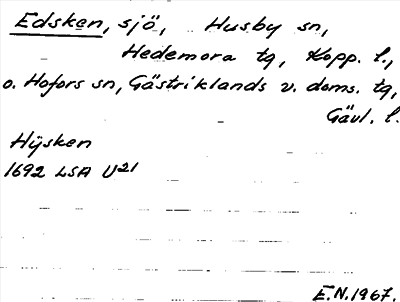 Edsken, sjö, Husby sn,
Hedemora tg, Kopp. l.,
o. Hofors sn, Gästriklands v. doms. tg,
Gävl. l.
Hÿsken
1692 LSA U21
E.N.1967.